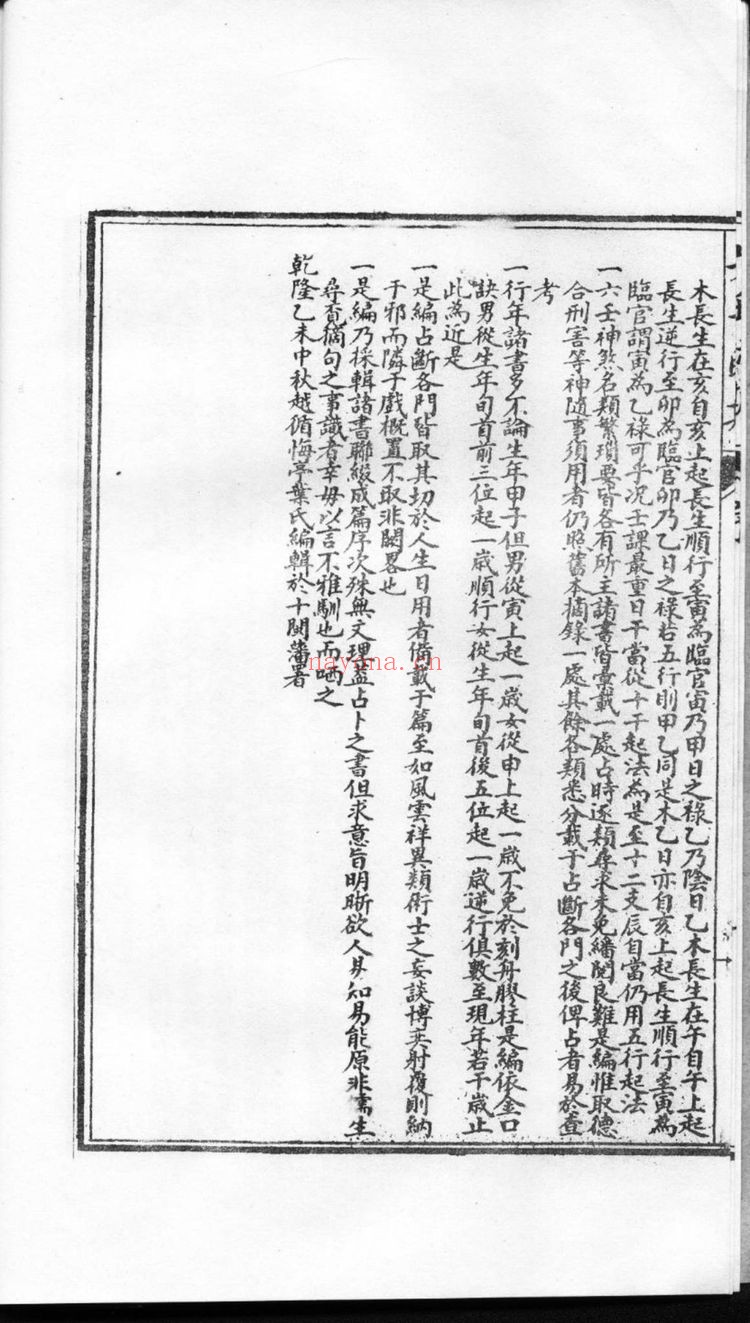 木長生在亥自亥上起長生順行至寅為臨官寅乃甲日之祿乙乃陰日乙木長生在午自午上起
長生逆行至卯為臨官卯乃乙日之祿若五行則甲乙同是木乙日亦自亥上起長生順行至寅為
臨官謂寅為乙祿可乎况壬課最重日干當從十干起法為是至十二支辰自當仍用五行起法
一六壬神煞名類繁瑣要皆各有所主諸書皆彙載一處占時逐類尋求未免繙閱良難是編惟取德
合刑害等神隨事須用者仍照舊本摘錄一處其餘各類悉分載于占斷各門之後俾占者易於查
考
一行年諸書多不論生年甲子但男從寅上起一歲女從申上起一歲不免於刻舟膠柱是編依金口
訣男從生年旬首前三位起一歲順行女從生年旬首後五位起一歲逆行俱數至現年若干歲止
此為近是
一是編占斷各門皆取其切於人生日用者俻載于篇至如風雲祥異類術士之妄談博奕射覆則納
于邪而隣于戲概置不取非闕畧也
一是編乃採輯諸書聯綴成篇序次殊無文理盖占卜之書但求意旨明晰欲人易知易能原非儒生
尋章摘句之事識者幸毋以言不雅馴也而哂之
乾隆乙未中秋越循悔亭葉氏編輯於十閩藩署
nayona.cn